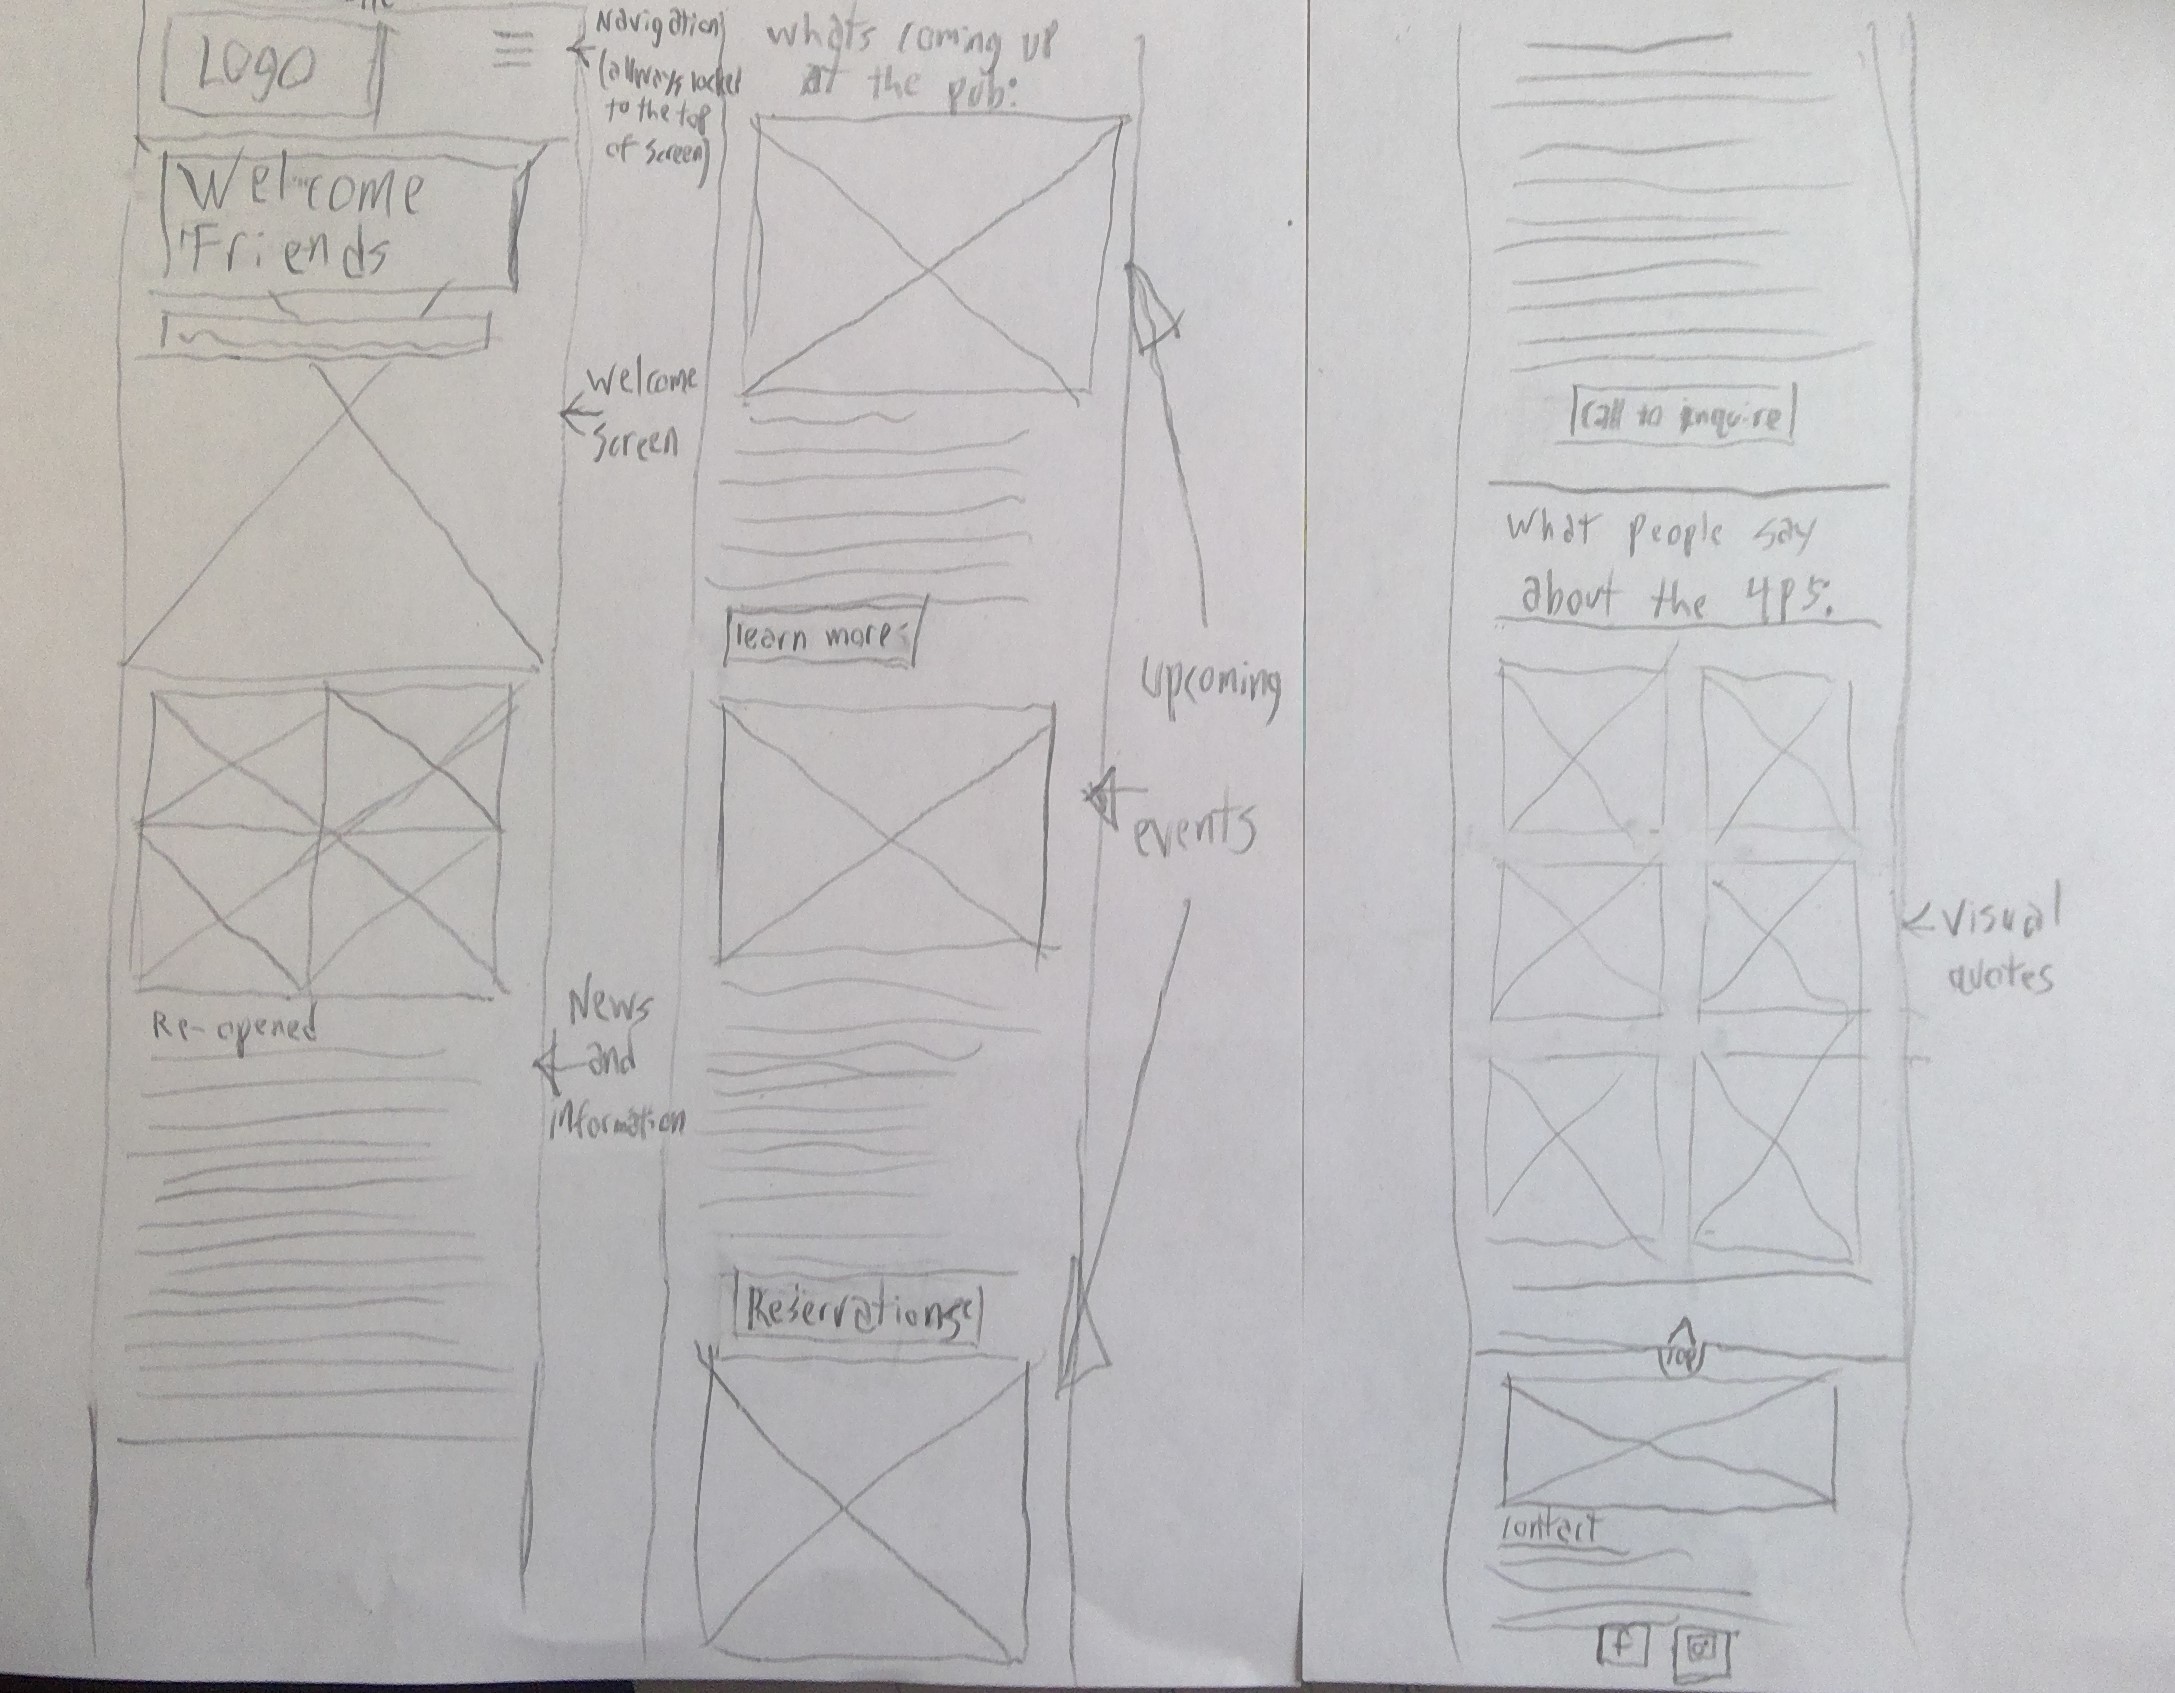 Logo
Navigation
(allways locked
to the top
of screen)
Welcome
Friends
Welcome
Screen
Re-opened
News
and
information
whats coming up
at the pub:
learn more
upcoming
events
Reservations
Call to inquire
What people say
about the 4P's:
Visual
quotes
TOP
contact
f